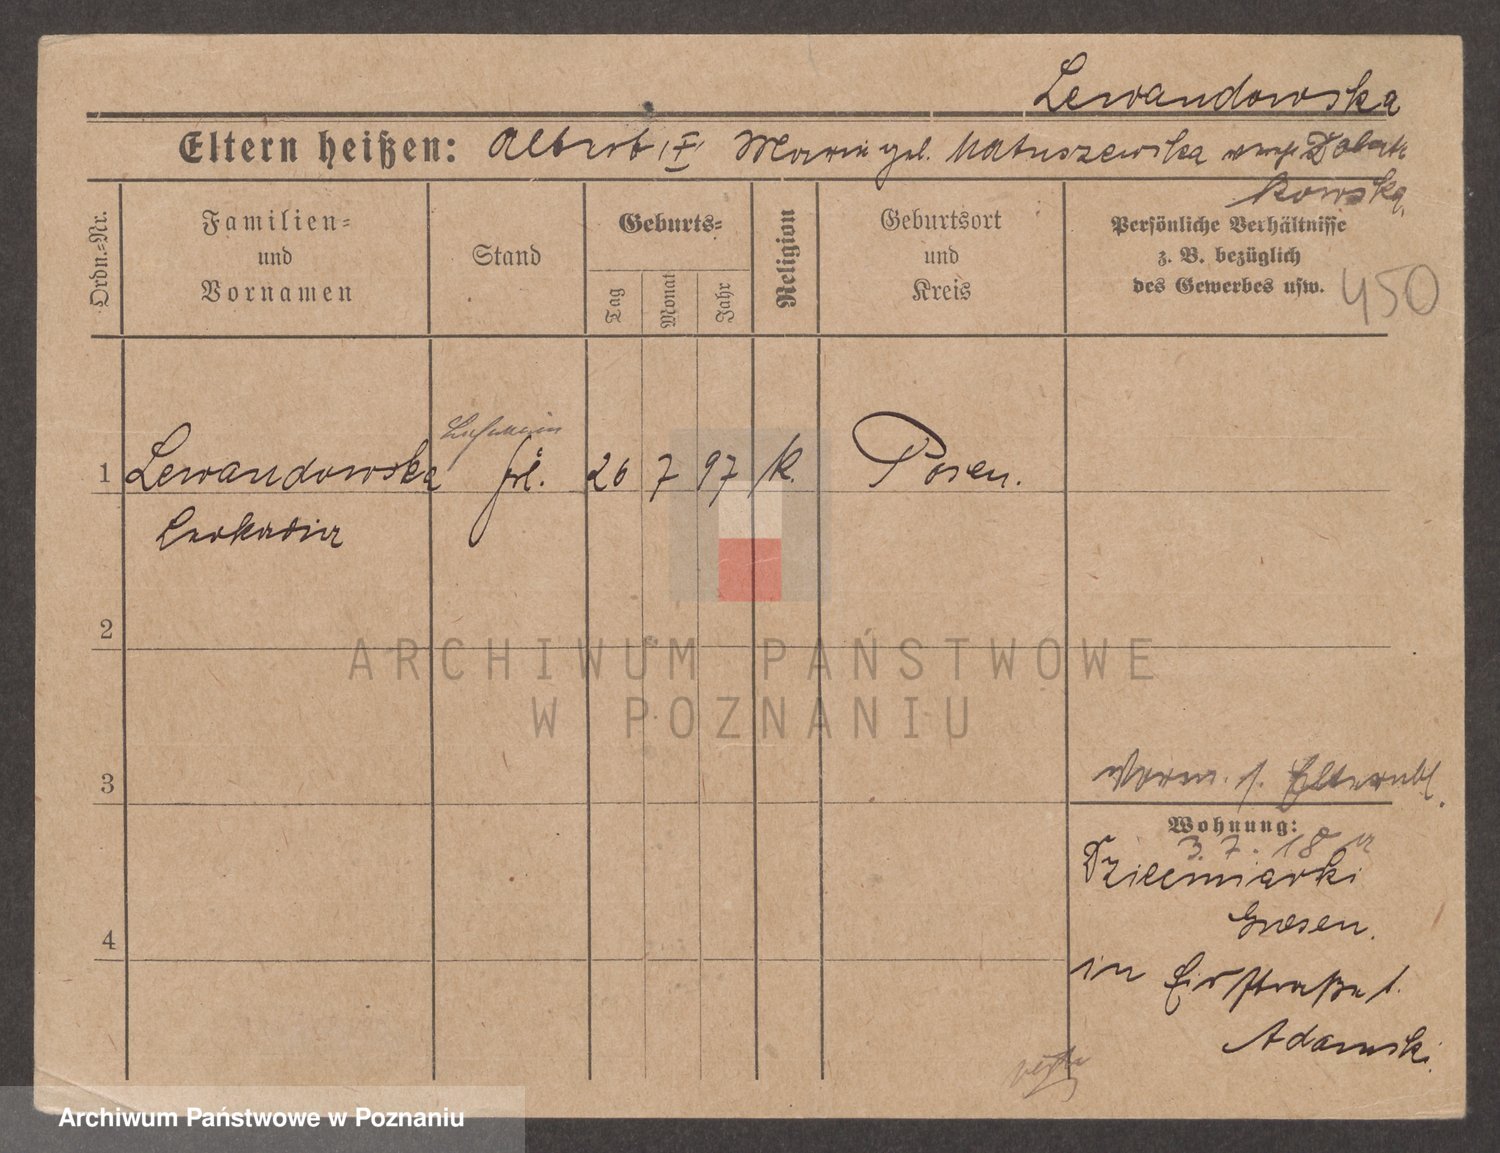 Lewandowska
Eltern heißen: Albert (†) Marie geb. Matuszewska
kowska
Ordn.=Nr.
Familien=
und
Vornamen
Stand
Geburts=
Tag
Monat
Jahr
Religion
Geburtsort
und
Kreis
Persönliche Verhältnisse
z. B. bezüglich
des Gewerbes usw.
450
1 Lewandowska frl. 26 7 97 k. Posen.
Leokadia
2
ARCHIWUM PAŃSTWOWE
W POZNANIU
3
Vorm. s. Elternbl.
Wohnung:
3. 7. 18
Dziecmiarki
Gnesen.
4
in
Adamski
Archiwum Państwowe w Poznaniu